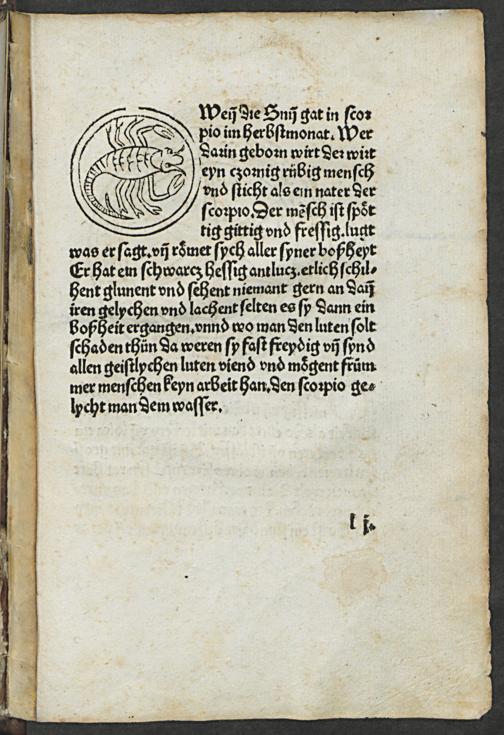 Weñ die Suñ gat in scor
pio im herbstmonat. Wer
darin geborn wirt der wirt
eyn czornig rübig mensch
vnd sticht als ein nater der
scorpio. Der mēsch ist spöt
tig gittig vnd fressig. lugt
was er sagt. vñ römet sych aller syner boßheyt
Er hat ein schwarcz hessig antlucz. etlich schil⸗
hent glunent vnd sehent niemant gern an dañ
iren gelychen vnd lachent selten es sy dann ein
boßheit ergangen. vnnd wo man den luten solt
schaden thün da weren sy fast freydig vñ synd
allen geistlychen luten viend vnd mögent früm
mer menschen keyn arbeit han. den scorpio ge⸗
lycht man dem wasser.
l j.